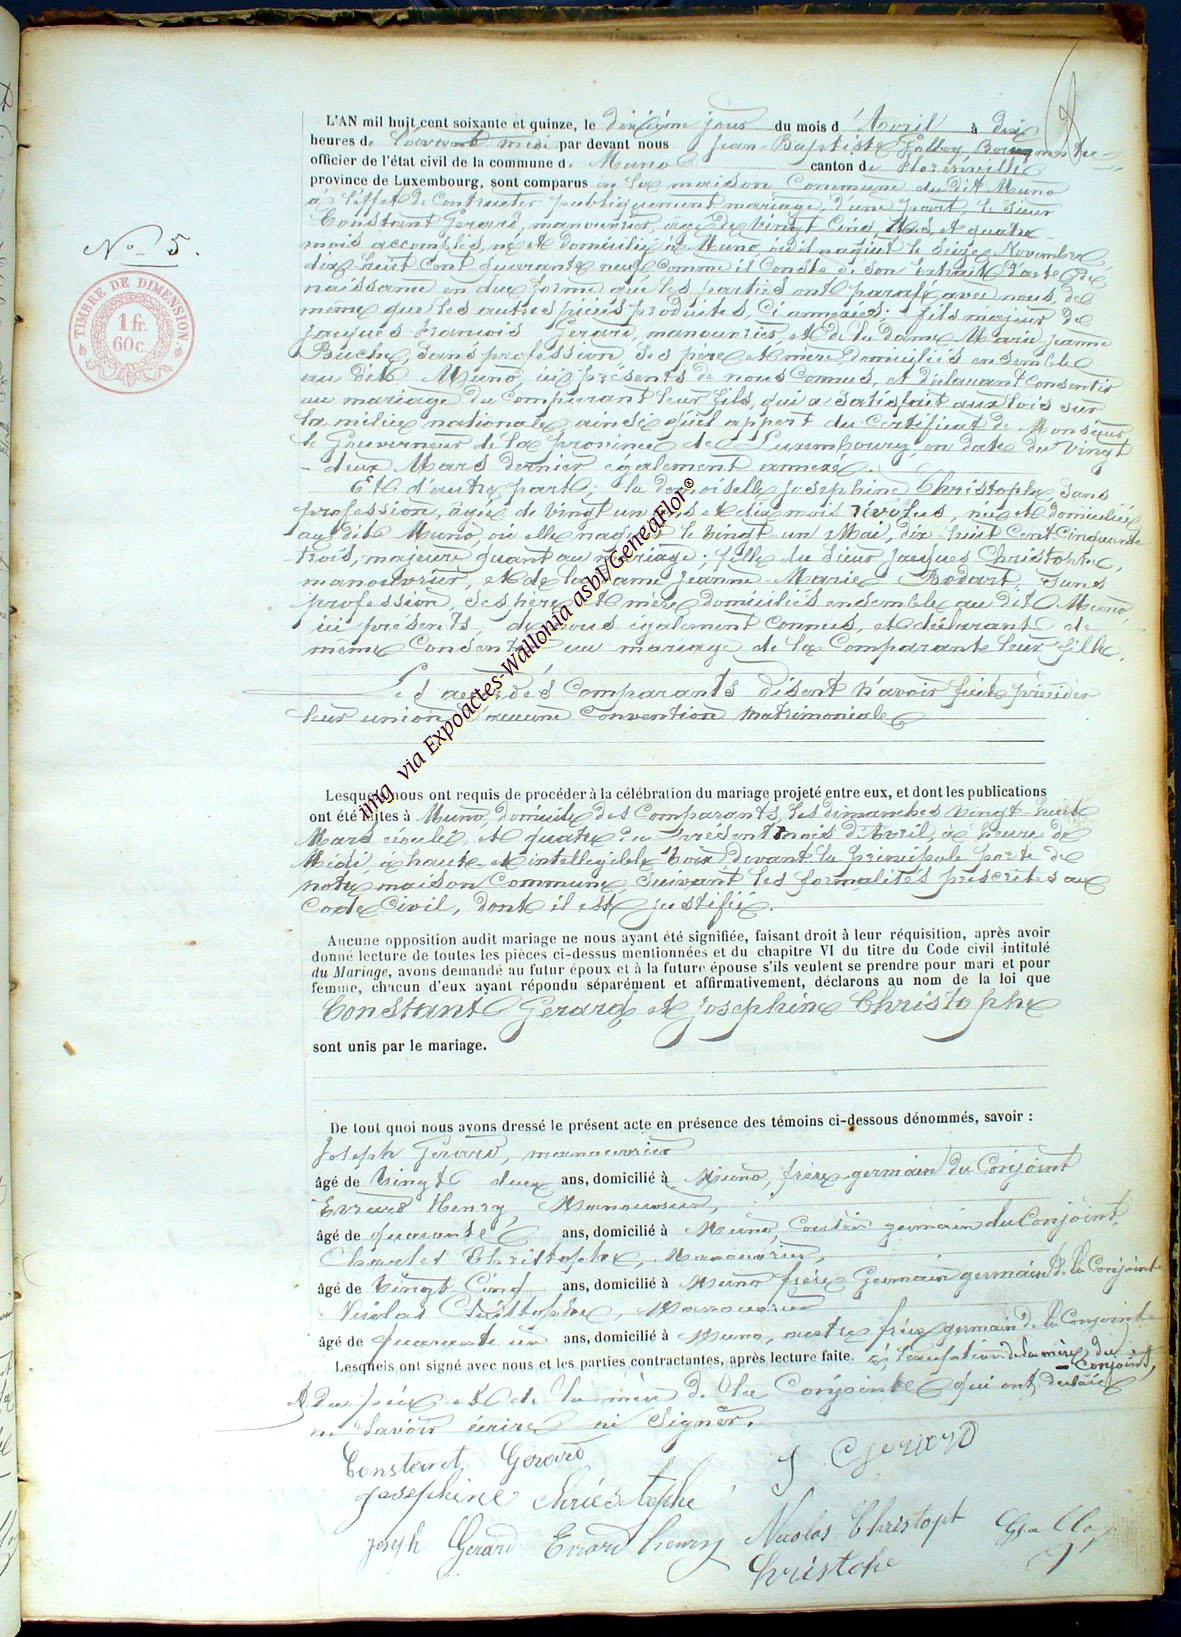 L'AN mil huit cent soixante et quinze, le dixième jour du mois d'Avril à dix
heures de l'avant midi par devant nous Jean-Baptiste Golloy, Bourgmestre
officier de l'état civil de la commune de Muno canton de Florenville
province de Luxembourg, sont comparus en la maison Commune du dit Muno
à l'effet de contracter publiquement mariage, d'une part, le sieur
Constant Gerard, manouvrier, âgé de vingt cinq ans et quatre
mois accomplis, né et domicilié à Muno où il naquit le seize Novembre
dix-huit cent quarante neuf comme il conste de son extrait d'acte de
N° 5.
naissance en due forme que les parties ont parafé avec nous, de
même que les autres pièces produites, ci annexées; fils majeur de
TIMBRE DE DIMENSION
1 fr.
60 c.
Jacques François Gerard, manouvrier, et de la dame Marie-Jeanne
Buche, sans profession, ses père et mère domiciliés ensemble
au dit Muno, ici présents de nous connus, et déclarant consentir
au mariage du comparant leur fils, qui a satisfait aux lois sur
la milice nationale ainsi qu'il appert du certificat de Monsieur
le Gouverneur de la province de Luxembourg en date du vingt
- deux Mars dernier egalement annexé.
Et d'autre part, la demoiselle Josephine Christophe, sans
profession, âgée de vingt un ans et dix mois révolus, née et domiciliée
au dit Muno, où elle naquit le vingt-un Mai, dix huit cent cinquante
trois, majeure quant au mariage; fille du sieur Jacques Christophe,
manouvrier, et de la dame Jeanne-Marie Bodart, sans
profession, ses père et mère domiciliés ensemble au dit Muno,
ici présents, de nous egalement connus, et déclarant de
même consentir au mariage de la comparante leur fille.
Les comparants disent n'avoir fait précéder
leur union d'aucune convention matrimoniale
img via Expoactes-Wallonia asbl/GeneaFlor®
Lesquels nous ont requis de procéder à la célébration du mariage projeté entre eux, et dont les publications
ont été faites à Muno, domicile des comparants, les dimanches vingt-huit
Mars écoulé, et quatre du présent mois d'Avril, à heure de
Midi, à haute et intelligible voix, devant la principale porte de
notre maison Commune, suivant les formalités prescrites au
Code Civil, dont il est justifié.
Aucune opposition audit mariage ne nous ayant été signifiée, faisant droit à leur réquisition, après avoir
donné lecture de toutes les pièces ci-dessus mentionnées et du chapitre VI du titre du Code civil intitulé
du Mariage, avons demandé au futur époux et à la future épouse s'ils veulent se prendre pour mari et pour
femme, chacun d'eux ayant répondu séparément et affirmativement, déclarons au nom de la loi que
Constant Gerard et Josephine Christophe
sont unis par le mariage.
De tout quoi nous avons dressé le présent acte en présence des témoins ci-dessous dénommés, savoir :
Joseph Gerard, manouvrier
âgé de vingt deux ans, domicilié à Muno, frère germain du Conjoint
Evrard Henry, Manouvrier,
âgé de quarante ans, domicilié à Muno, cousin germain du Conjoint,
Charles Christophe, Manouvrier,
âgé de vingt cinq ans, domicilié à Muno frère Germain germain de la Conjointe
Nicolas Christophe, Manouvrier
âgé de quarante un ans, domicilié à Muno, autre frère germain de la Conjointe
Lesquels ont signé avec nous et les parties contractantes, après lecture faite. à l'exception de la mère du
- Conjoint,
du père et de la mère de la Conjointe qui ont déclaré
ne savoir écrire ni signer.
Constant Gerard J Gerard
Josephine Christophe
Joseph Gerard Evrard henry Nicolas Christoph Golloy
Christophe